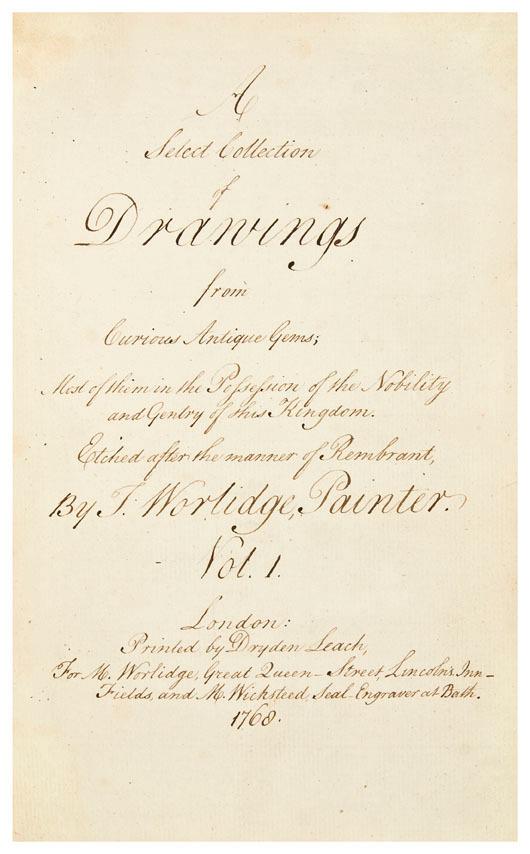 A
Select Collection
of
Drawings
from
Curious Antique Gems;
Most of them in the Possession of the Nobility
and Gentry of this Kingdom.
Etched after the manner of Rembrant,
By T. Worlidge, Painter.
Vol. 1.
London:
Printed by Dryden Leach,
For M. Worlidge, Great Queen-Street, Lincoln's Inn-
Fields, and M. Wicksteed, Seal-Engraver at Bath.
1768.